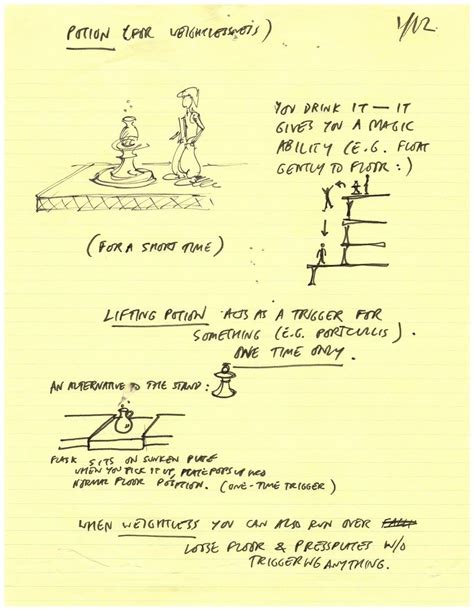 POTION (FOR WEIGHTLESSNESS)
1/02
YOU DRINK IT — IT
GIVES YOU A MAGIC
ABILITY (E.G. FLOAT
GENTLY TO FLOOR:)
(FOR A SHORT TIME)
LIFTING POTION ACTS AS A TRIGGER FOR
SOMETHING (E.G. PORTCULLIS).
ONE TIME ONLY.
AN ALTERNATIVE TO THE STAND:
FLASK SITS ON SUNKEN PLATE
WHEN YOU PICK IT UP, PLATE POPS UP INTO
NORMAL FLOOR POSITION. (ONE-TIME TRIGGER)
WHEN WEIGHTLESS YOU CAN ALSO RUN OVER
LOOSE FLOOR & PRESSPLATES W/O
TRIGGERING ANYTHING.